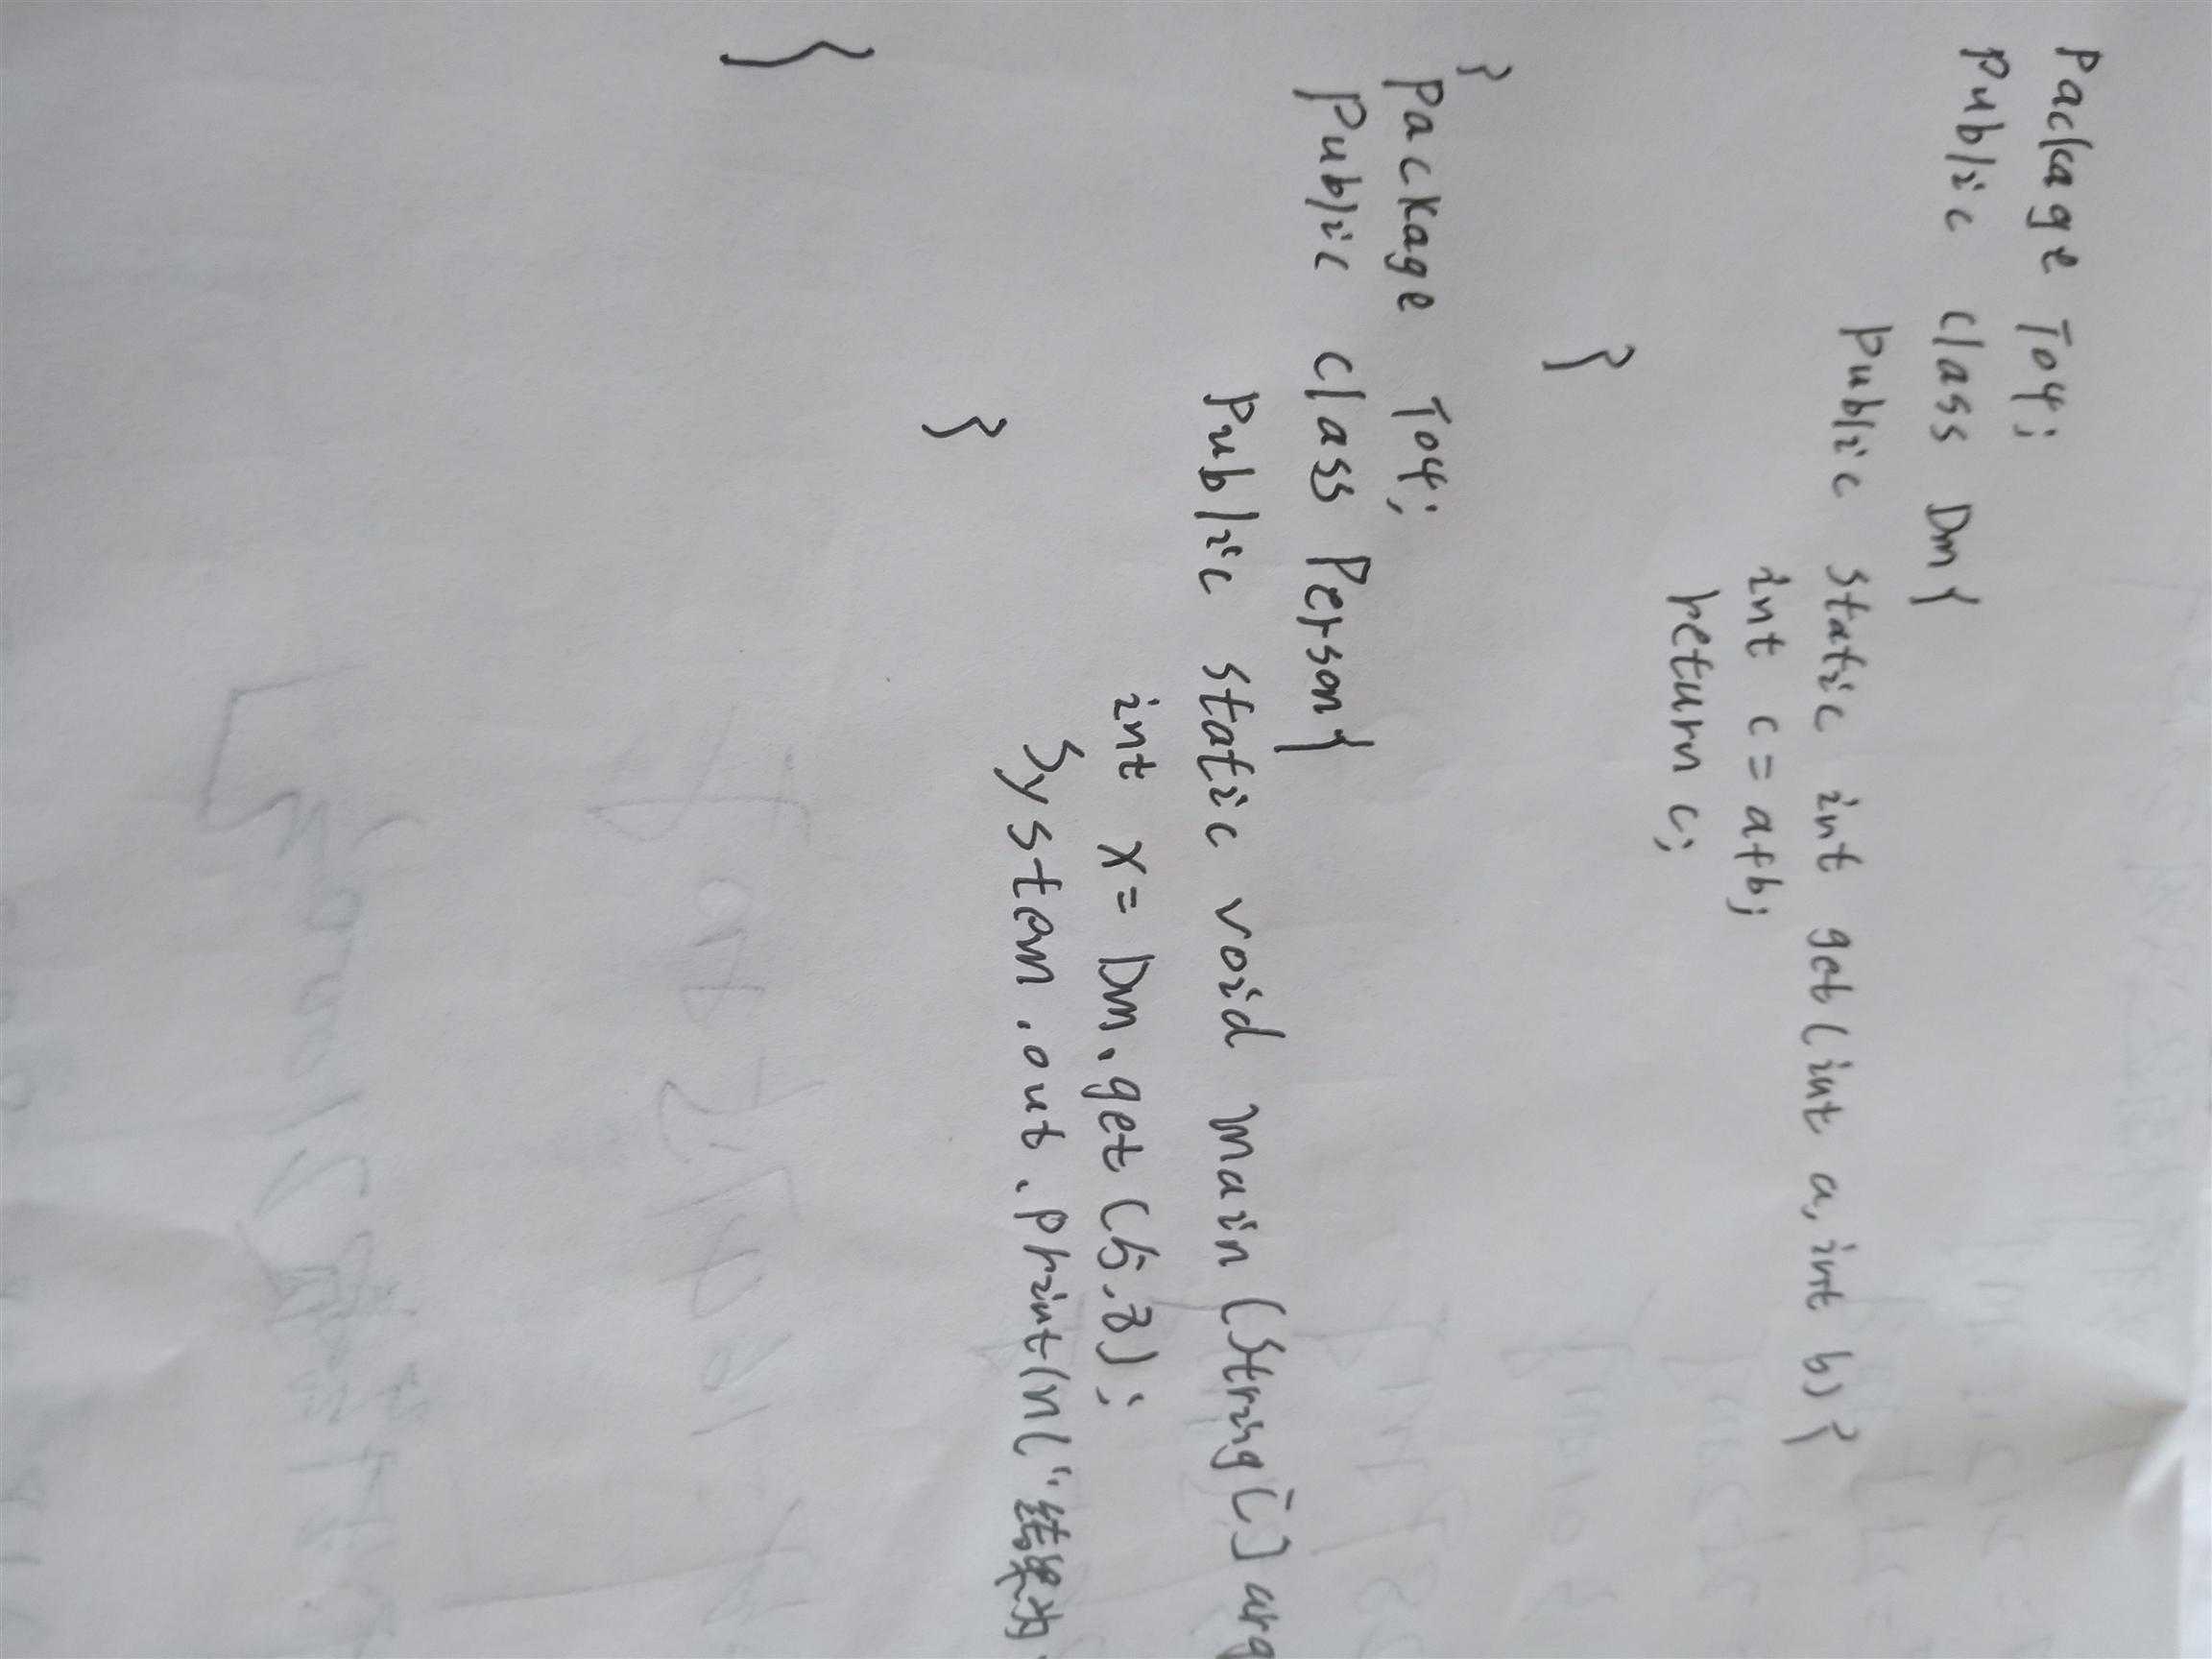 Package To4;
Public class Dm{
public static int get(int a, int b){
int c = a+b;
return c;
}
}
Package To4;
Public class Person{
Public static void main(String[] arg
int x = Dm.get(5.8);
System.out.println("结果为
}
}